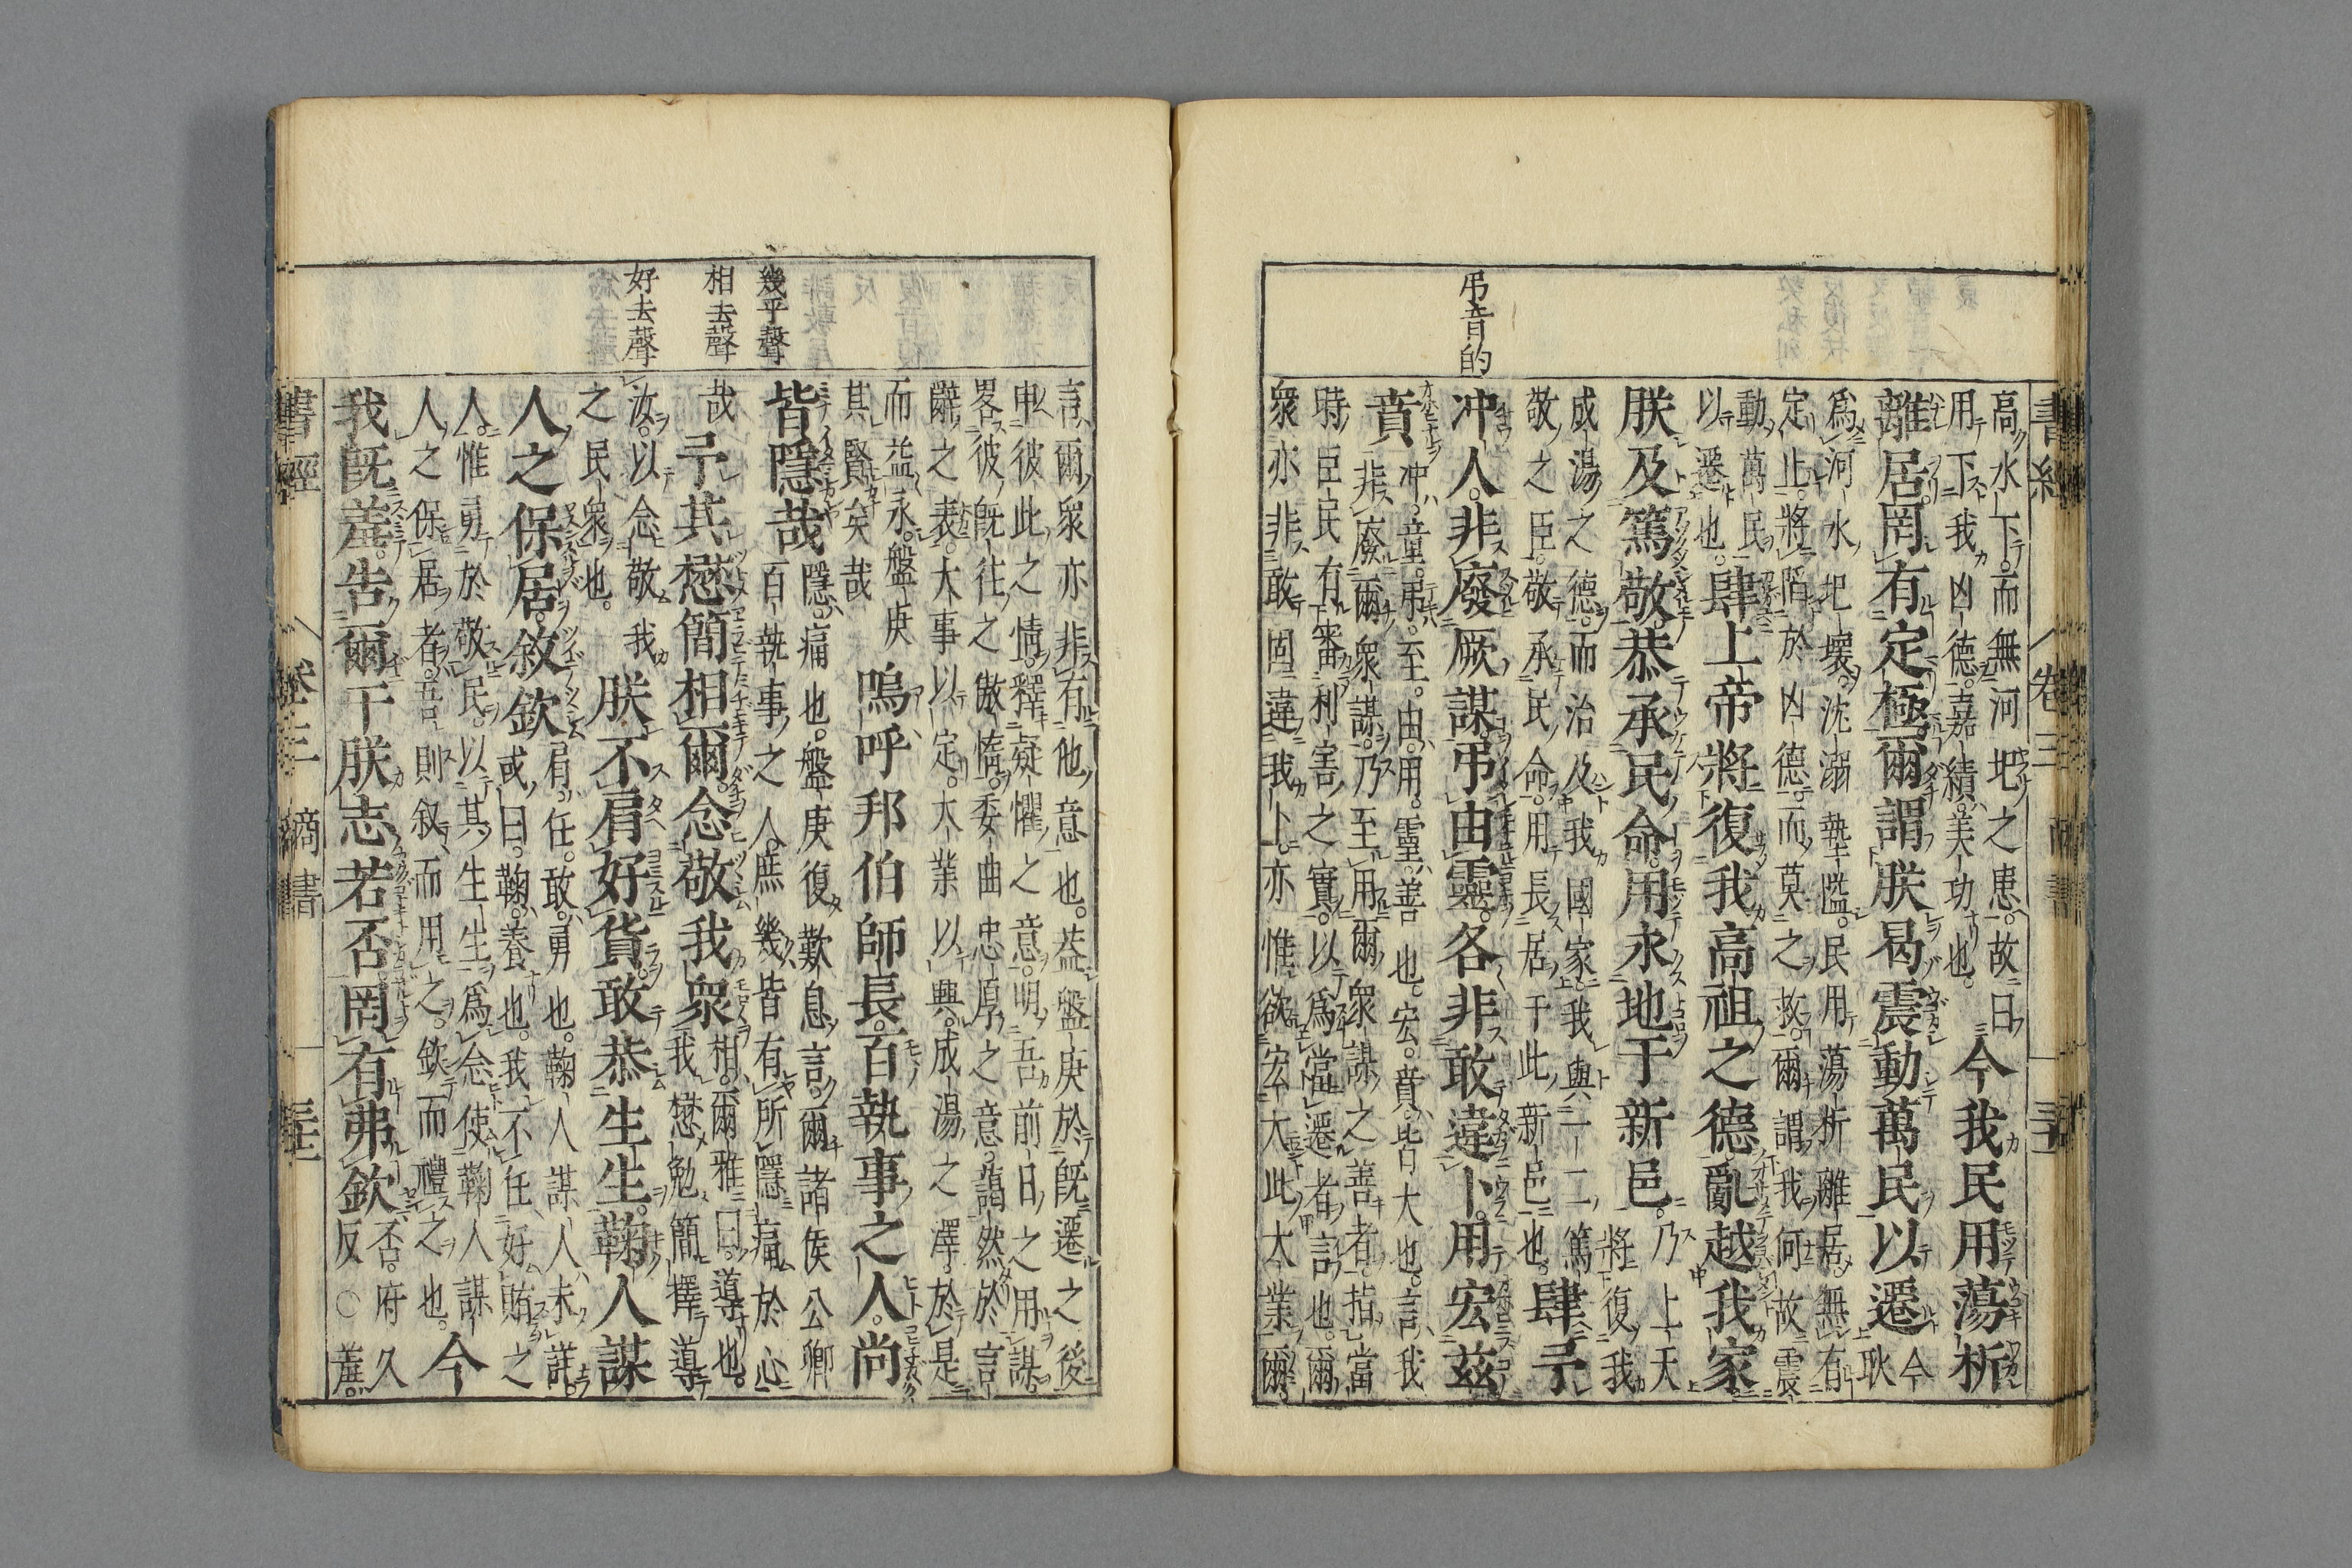 書經 卷三 商書
高水下而無河圯之患故曰
用下我凶德嘉績美功也
今我民用蕩析
離居罔有定極爾謂朕曷震動萬民以遷
今
耿
爲河水圯壞沈溺墊隘民用蕩析離居無有
定止將陷於凶德而莫之救爾謂我何故震
動萬民
以遷也
肆上帝將復我高祖之德亂越我家
朕及篤敬恭承民命用永地于新邑
乃上天
將復我
成湯之德而治及我國家我與一二篤
敬之臣敬承民命用長居于此新邑也
肆予
弔音的
冲人非廢厥謀弔由靈各非敢違卜用宏茲
賁
冲童弔至由用靈善也宏賁皆大也言我
非廢爾衆謀乃至用爾衆謀之善者指當
時臣民有審利害之實以爲當遷者言也爾
衆亦非敢固違我卜亦惟欲宏大此大業爾
言爾衆亦非有他意也蓋盤庚於既遷之後
申彼此之情釋疑懼之意明吾前日之用謀
畧彼既往之傲惰委曲忠厚之意藹然於言
辭之表大事以定大業以興成湯之澤於是
而益永盤庚
其賢矣哉
嗚呼邦伯師長百執事之人尚
幾平聲
皆隱哉
隱痛也盤庚復歎息言爾諸侯公卿
百執事之人庶幾皆有所隱痛於心
哉
相去聲
予其懋簡相爾念敬我衆
相爾雅曰導也
我懋勉簡擇導
好去聲
汝以念敬我
之民衆也
朕不肩好貨敢恭生生鞠人謀
人之保居敘欽
肩任敢勇也鞠人謀人未詳
或曰鞠養也我不任好賄之
人惟勇於敬民以其生生爲念使鞠人謀
人之保居者吾則叙而用之欽而禮之也
今
我既羞告爾于朕志若否罔有弗欽
否府久
反○羞
書經 卷三 商書